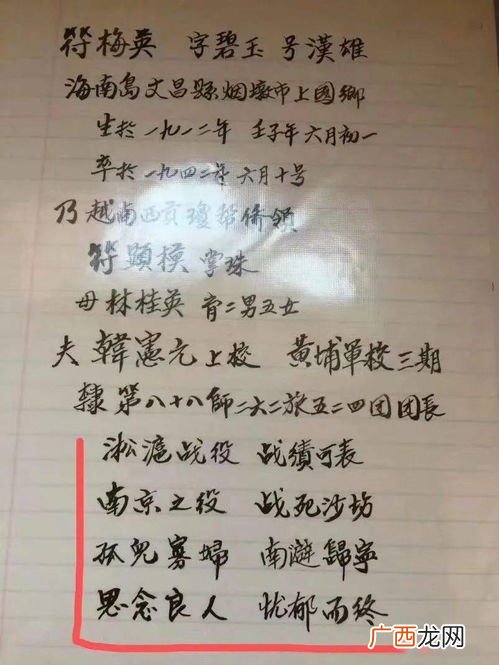 符梅英 字碧玉 号漢雄
海南島文昌縣烟墩市上國鄉
生於一九一二年 壬子年六月初一
卒於一九四二年六月十号
乃越南西貢瓊幇僑領
符顯模掌珠
母林桂英 育二男五女
夫韓憲元上校 黃埔軍校三期
隸第八十八師二六二旅五二四团团長
淞滬战役 战績可表
南京之役 战死沙坊
孤兒寡婦 南遊歸寧
思念良人 忧郁而终
广西龙网